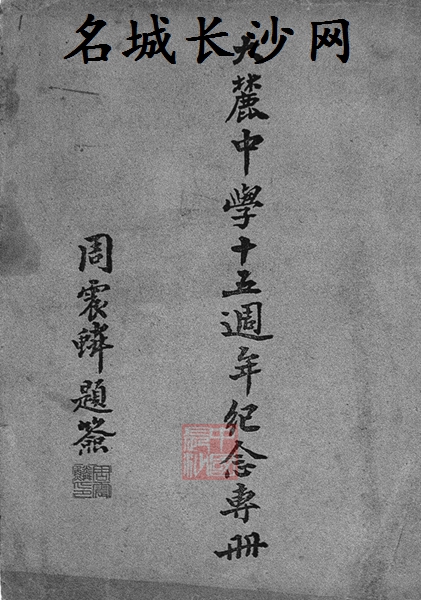 名城长沙网
大麓中學十五週年紀念專冊
周震鱗題簽